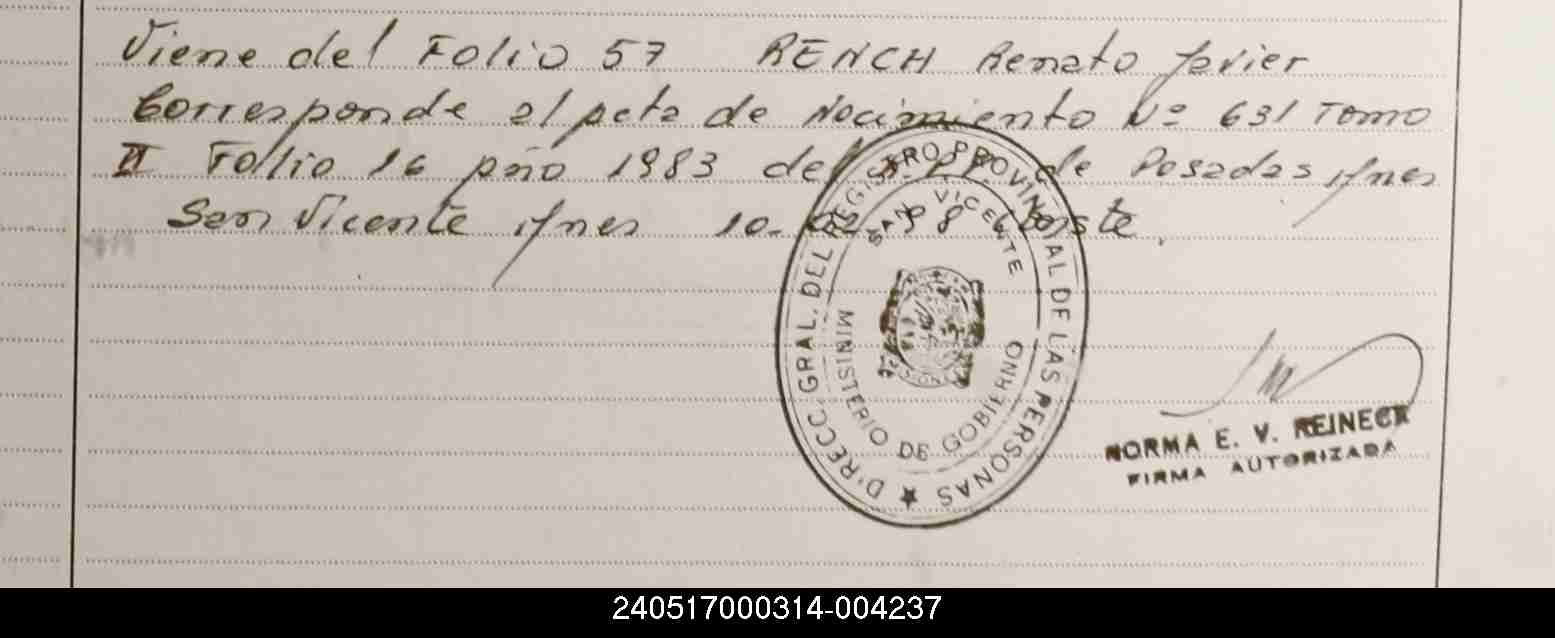 Viene del Folio 57 RENCH Renato Javier
Corresponde al Acta de Nacimiento Nº 631 Tomo
II Folio 16 Año 1983 del de Posadas Mnes
San Vicente Mnes 10- 98 Conste.
DIRECC. GRAL. DEL REGISTRO PROVINCIAL DE LAS PERSONAS
SAN VICENTE
MINISTERIO DE GOBIERNO
NORMA E. V. REINECK
FIRMA AUTORIZADA
240517000314-004237